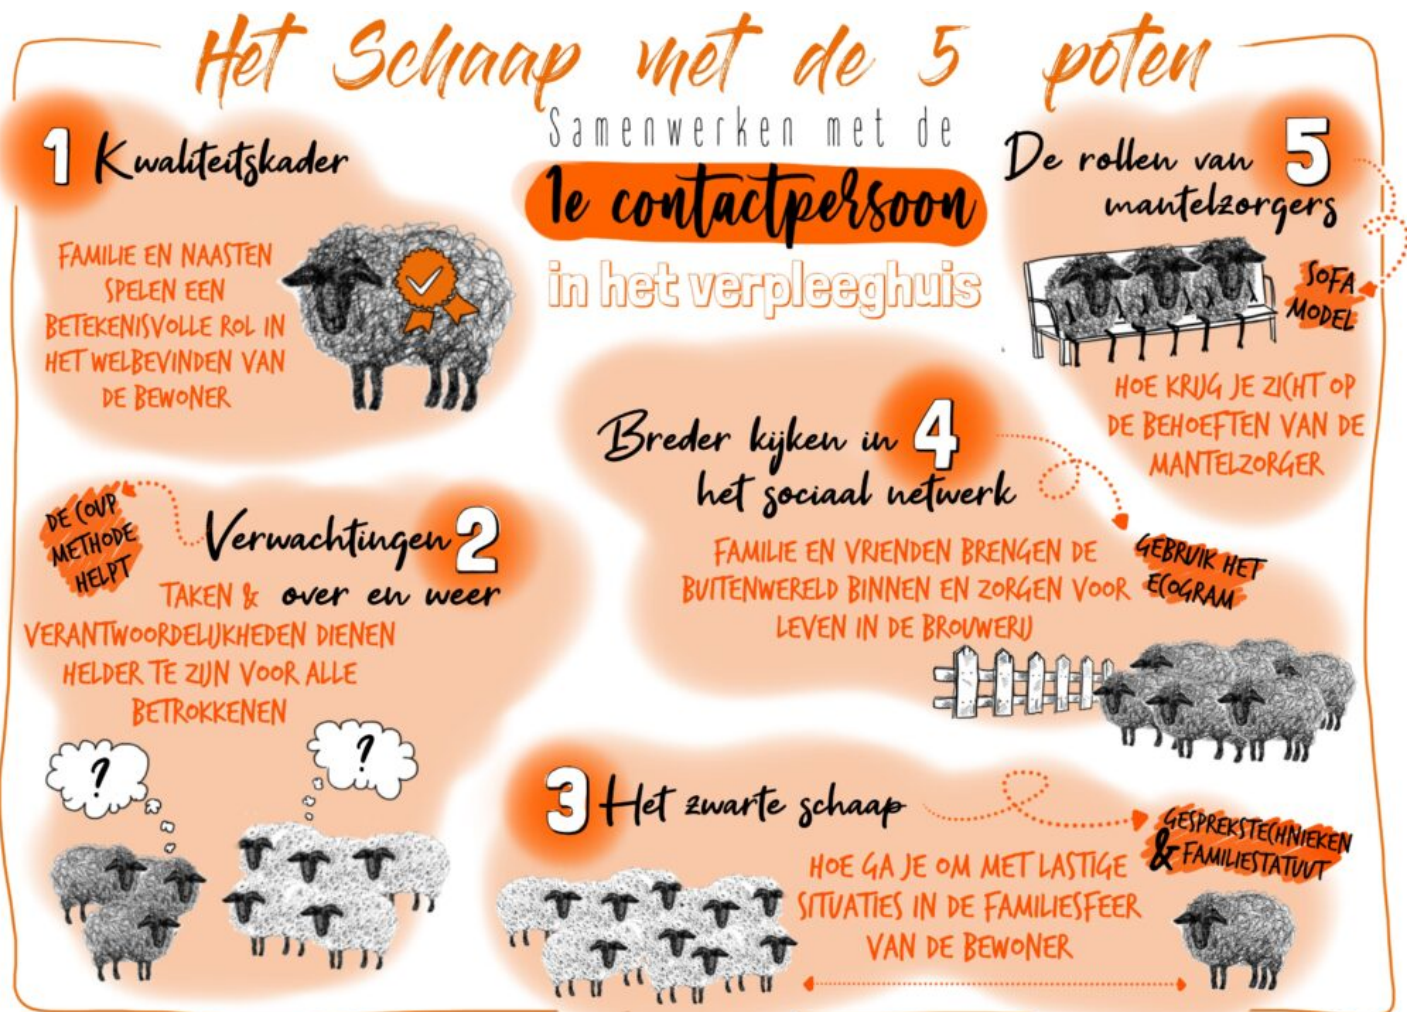 Het Schaap met de 5 poten
Samenwerken met de
1e contactpersoon
in het verpleeghuis
1 Kwaliteitskader
FAMILIE EN NAASTEN
SPELEN EEN
BETEKENISVOLLE ROL IN
HET WELBEVINDEN VAN
DE BEWONER
Verwachtingen 2
over en weer
DE COUP
METHODE
HELPT
TAKEN &
VERANTWOORDELIJKHEDEN DIENEN
HELDER TE ZIJN VOOR ALLE
BETROKKENEN
?
?
3 Het zwarte schaap
HOE GA JE OM MET LASTIGE
SITUATIES IN DE FAMILIESFEER
VAN DE BEWONER
GESPREKSTECHNIEKEN
& FAMILIESTATUUT
Breder kijken in 4
het sociaal netwerk
FAMILIE EN VRIENDEN BRENGEN DE
BUITENWERELD BINNEN EN ZORGEN VOOR
LEVEN IN DE BROUWERIJ
GEBRUIK HET
ECOGRAM
De rollen van 5
mantelzorgers
SOFA
MODEL
HOE KRIJG JE ZICHT OP
DE BEHOEFTEN VAN DE
MANTELZORGER